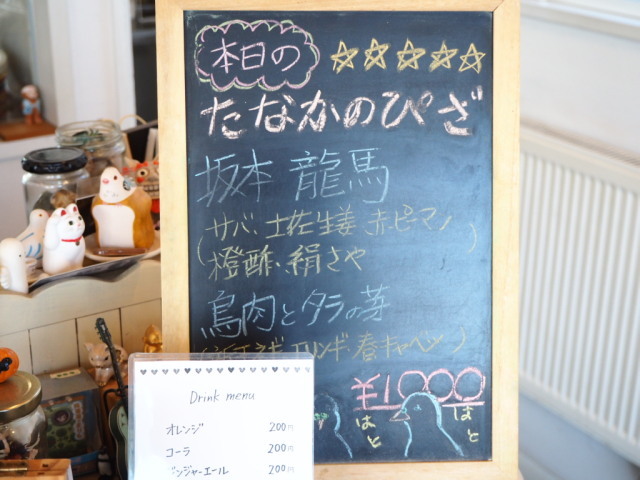 本日の ☆☆☆☆☆
たなかのぴざ
坂本 龍馬
(サバ・土佐生姜 赤ピーマン
橙酢・絹さや)
鳥肉とタラの芽
エリンギ・春キャベツ)
¥1000
はと
はと
Drink menu
オレンジ 200円
コーラ 200円
ジンジャーエール 200